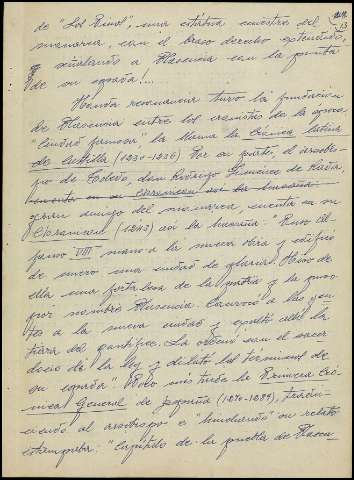 13
de "Sol Zurul", una estatua ecuestre del
monarca, con el brazo derecho extendido,
y señalando a Plasencia con la punta
de su espada!...
Honda resonancia tuvo la fundación
de Plasencia entre los cronistas de la época.
"Ciudad famosa" la llama la Crónica latina
de Castilla (1230-1236) Por su parte, el arzobis-
po de Toledo, don Rodrigo Jiménez de Rada,
gran amigo del monarca, cuenta en su
(1243) así la hazaña: "Puso Al-
fonso VIII mano a la nueva obra y edificó
de nuevo una ciudad de gloria. Hizo de
ella una fortaleza de la patria y la puso
por nombre Plasencia. Convocó a las gen-
tes a la nueva ciudad y exaltó allí la
tiara del pontífice. La ordenó con el sacer
docio de la ley y dilató los términos de
su espada". Poco más tarde la Primera Cró-
nica General de España (1270-1289), tradu-
ciendo al arzobispo e "hinchando" su relato
estampaba: "Capítulo de la puebla de Plasen